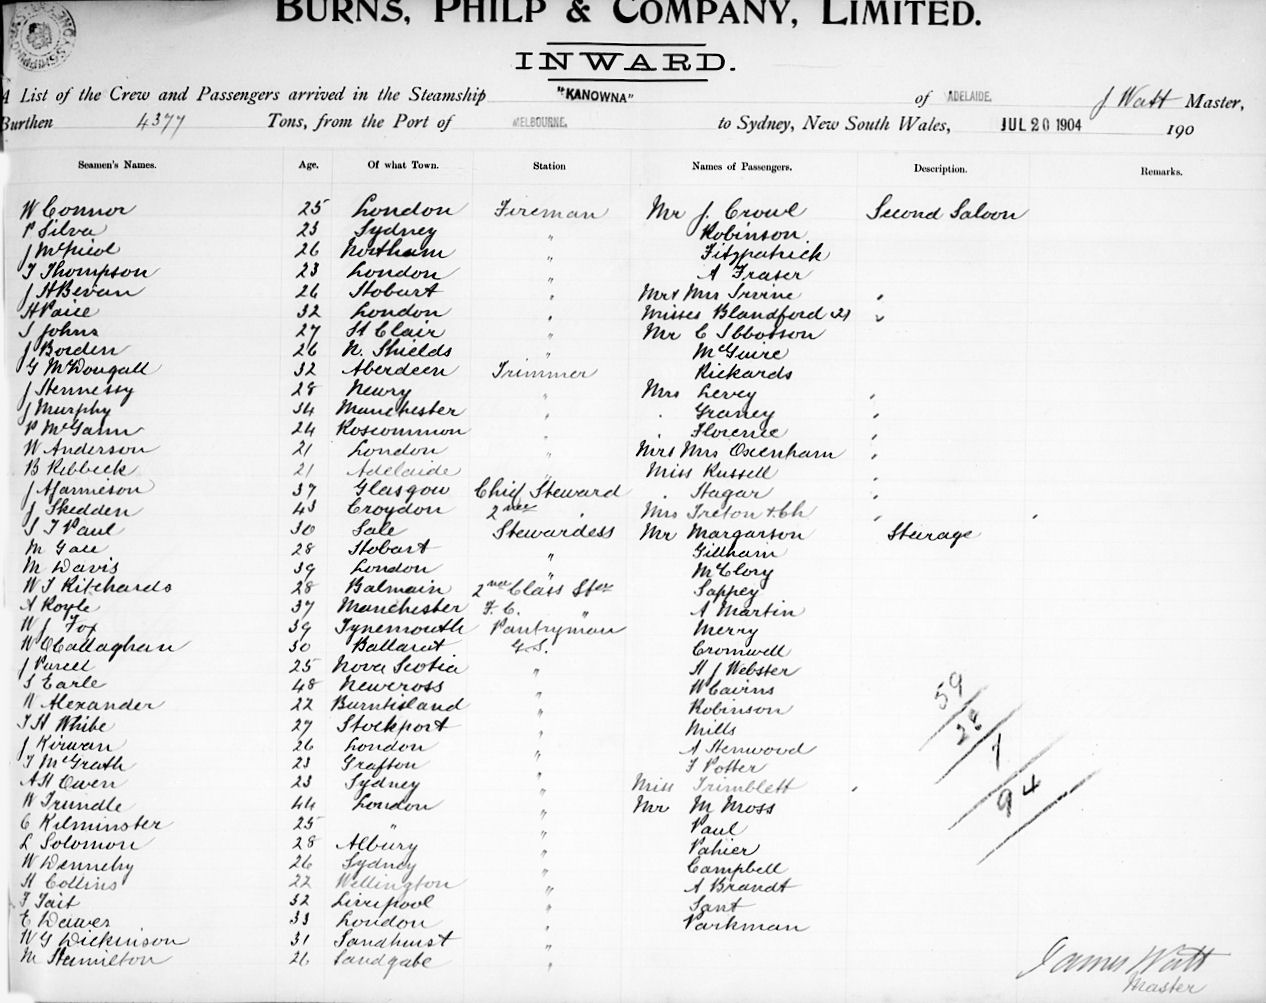 BURNS, PHILP & COMPANY, LIMITED.
INWARD.
A List of the Crew and Passengers arrived in the Steamship "KANOWNA" of ADELAIDE, J Watt Master,
Burthen 4377 Tons, from the Port of MELBOURNE, to Sydney, New South Wales, JUL 20 1904 190
Seamen's Names. Age. Of what Town. Station Names of Passengers. Description. Remarks.
W Connor 25 London Fireman Mr J. Crowe Second Saloon
P Silva 23 Sydney " Robinson
J McNicol 26 Northam " Fitzpatrick
T Thompson 23 London " A Fraser
J H Bevan 26 Hobart " Mr & Mrs Irvine "
H Paice 32 London " Misses Blandford 2 "
S Johns 27 St Clair " Mr C Ibbotson
J Borden 26 N. Shields " McGuire
G McDougall 32 Aberdeen Trimmer Rickards
J Hennessy 28 Newry " Mrs Levey "
J Murphy 34 Manchester " " Graney "
P McGann 24 Roscommon " " Florence "
W Anderson 21 London " Mr & Mrs Oxenham "
B Ribbeck 21 Adelaide " Miss Russell
J A Jamieson 37 Glasgow Chief Steward " Hagar "
J Skedden 43 Croydon 2nd " Mrs Treton & Ch "
S T Paul 30 Sale Stewardess Mr Margarson Steerage
M Gale 28 Hobart " Gillham
M Davis 39 London " McClory
W T Ritchards 28 Balmain 2nd Class Std Sappey
A Royle 37 Manchester F. C. " A Martin
W J Fox 39 Tynemouth Pantryman Merry
W OCallaghan 30 Ballarat G.S. Cromwell
J Purcell 25 Nova Scotia " H J Webster
S Earle 48 Newcross " W Cairns
W Alexander 22 Burntisland " Robinson
T H White 27 Stockport " Mills
J Kirwan 26 London " A Henwood
T McGrath 23 Grafton " F Potter
A H Owen 23 Sydney " Miss Trimblett "
W Trundle 44 London " Mr M Moss
C Kilminster 25 " " Paul
L Solomon 28 Albury " Pahier
W Dennehy 26 Sydney " Campbell
H Collins 22 Wellington " A Brandt
T Tait 32 Liverpool " Sant
E Dawes 33 London " Parkman
W G Dickinson 31 Sandhurst "
M Hamilton 26 Sandgate "
59
28
7
94
James Watt
Master